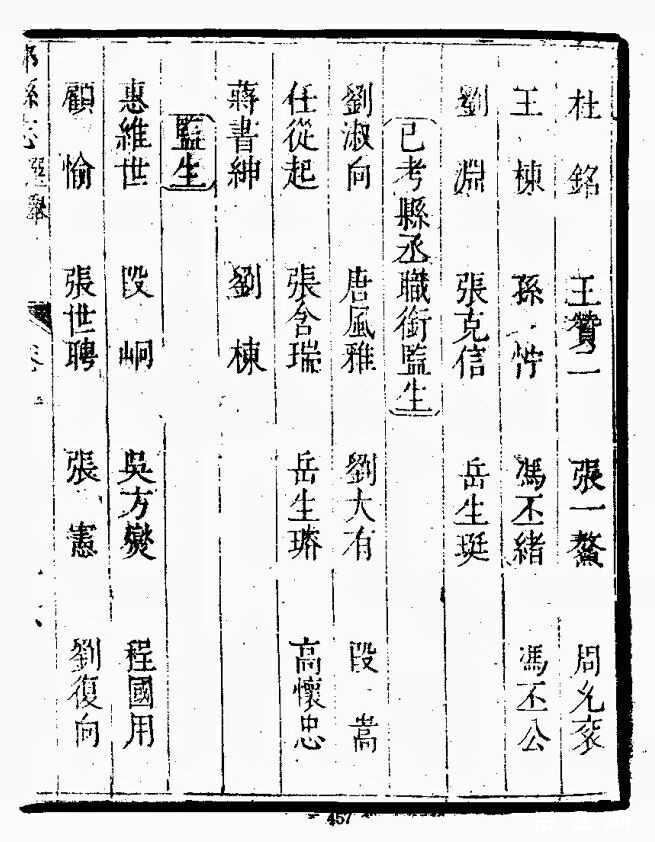 杜銘 王贊二 張一鰲 周允衮
王棟 孫 馮丕緒 馮丕公
劉淵 張克信 岳生珽
已考縣丞職銜監生
劉淑向 唐風雅 劉大有 段嵩
任從起 張含瑞 岳生𤩽 高懷忠
蔣書紳 劉棟
監生
惠維世 段峒 吳方燮 程國用
顧愉 張世聘 張憲 劉復向
縣志 選舉
457